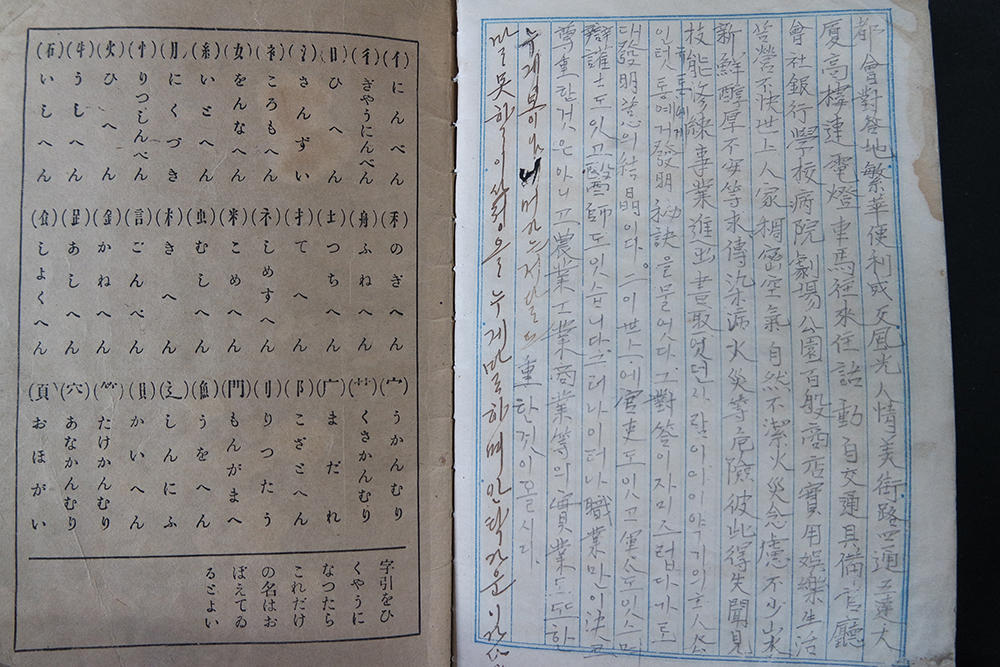 都會對答地繁華使利或交風光人情美街路四通五達大
廈高樓連電燈車馬往來住話動自交通具備官廳
會社銀行學校病院劇場公園百般商店實用娛樂生活
苦營不快世上人家稠密空氣自然不潔火災念慮不少山水
新鮮醇厚不安等求傳染病火災等危險彼此得失聞見
技能修練事業進出書取엇던사람이이야기의主人公
에게發明秘訣을물엇다그對答이자미스럽다
發明의結晶이다。그이世上에官吏도잇고軍人도잇스며
辯護士도잇고醫師도잇습니다그러나이러나職業만이決코
尊重한것은아니고農業工業商業等의實業도또한
重한것이올시다
(亻)にんべん
(彳)ぎやうにんべん
(日)ひへん
(氵)さんずい
(衤)ころもへん
(女)をんなへん
(糸)いとへん
(月)にくづき
(忄)りつしんべん
(火)ひへん
(牛)うしへん
(石)いしへん
(禾)のぎへん
(舟)ふねへん
(土)つちへん
(扌)てへん
(礻)しめすへん
(米)こめへん
(虫)むしへん
(木)きへん
(言)ごんべん
(金)かねへん
(𧾷)あしへん
(飠)しよくへん
(宀)うかんむり
(艹)くさかんむり
(广)まだれ
(阝)こざとへん
(刂)りつたう
(門)もんがまへ
(魚)うをへん
(辶)しんにふ
(貝)かいへん
(⺮)たけかんむり
(穴)あなかんむり
(頁)おほがい
字引をひ
くやうに
なつたら
これだけ
の名はお
ぼえてゐ
るとよい